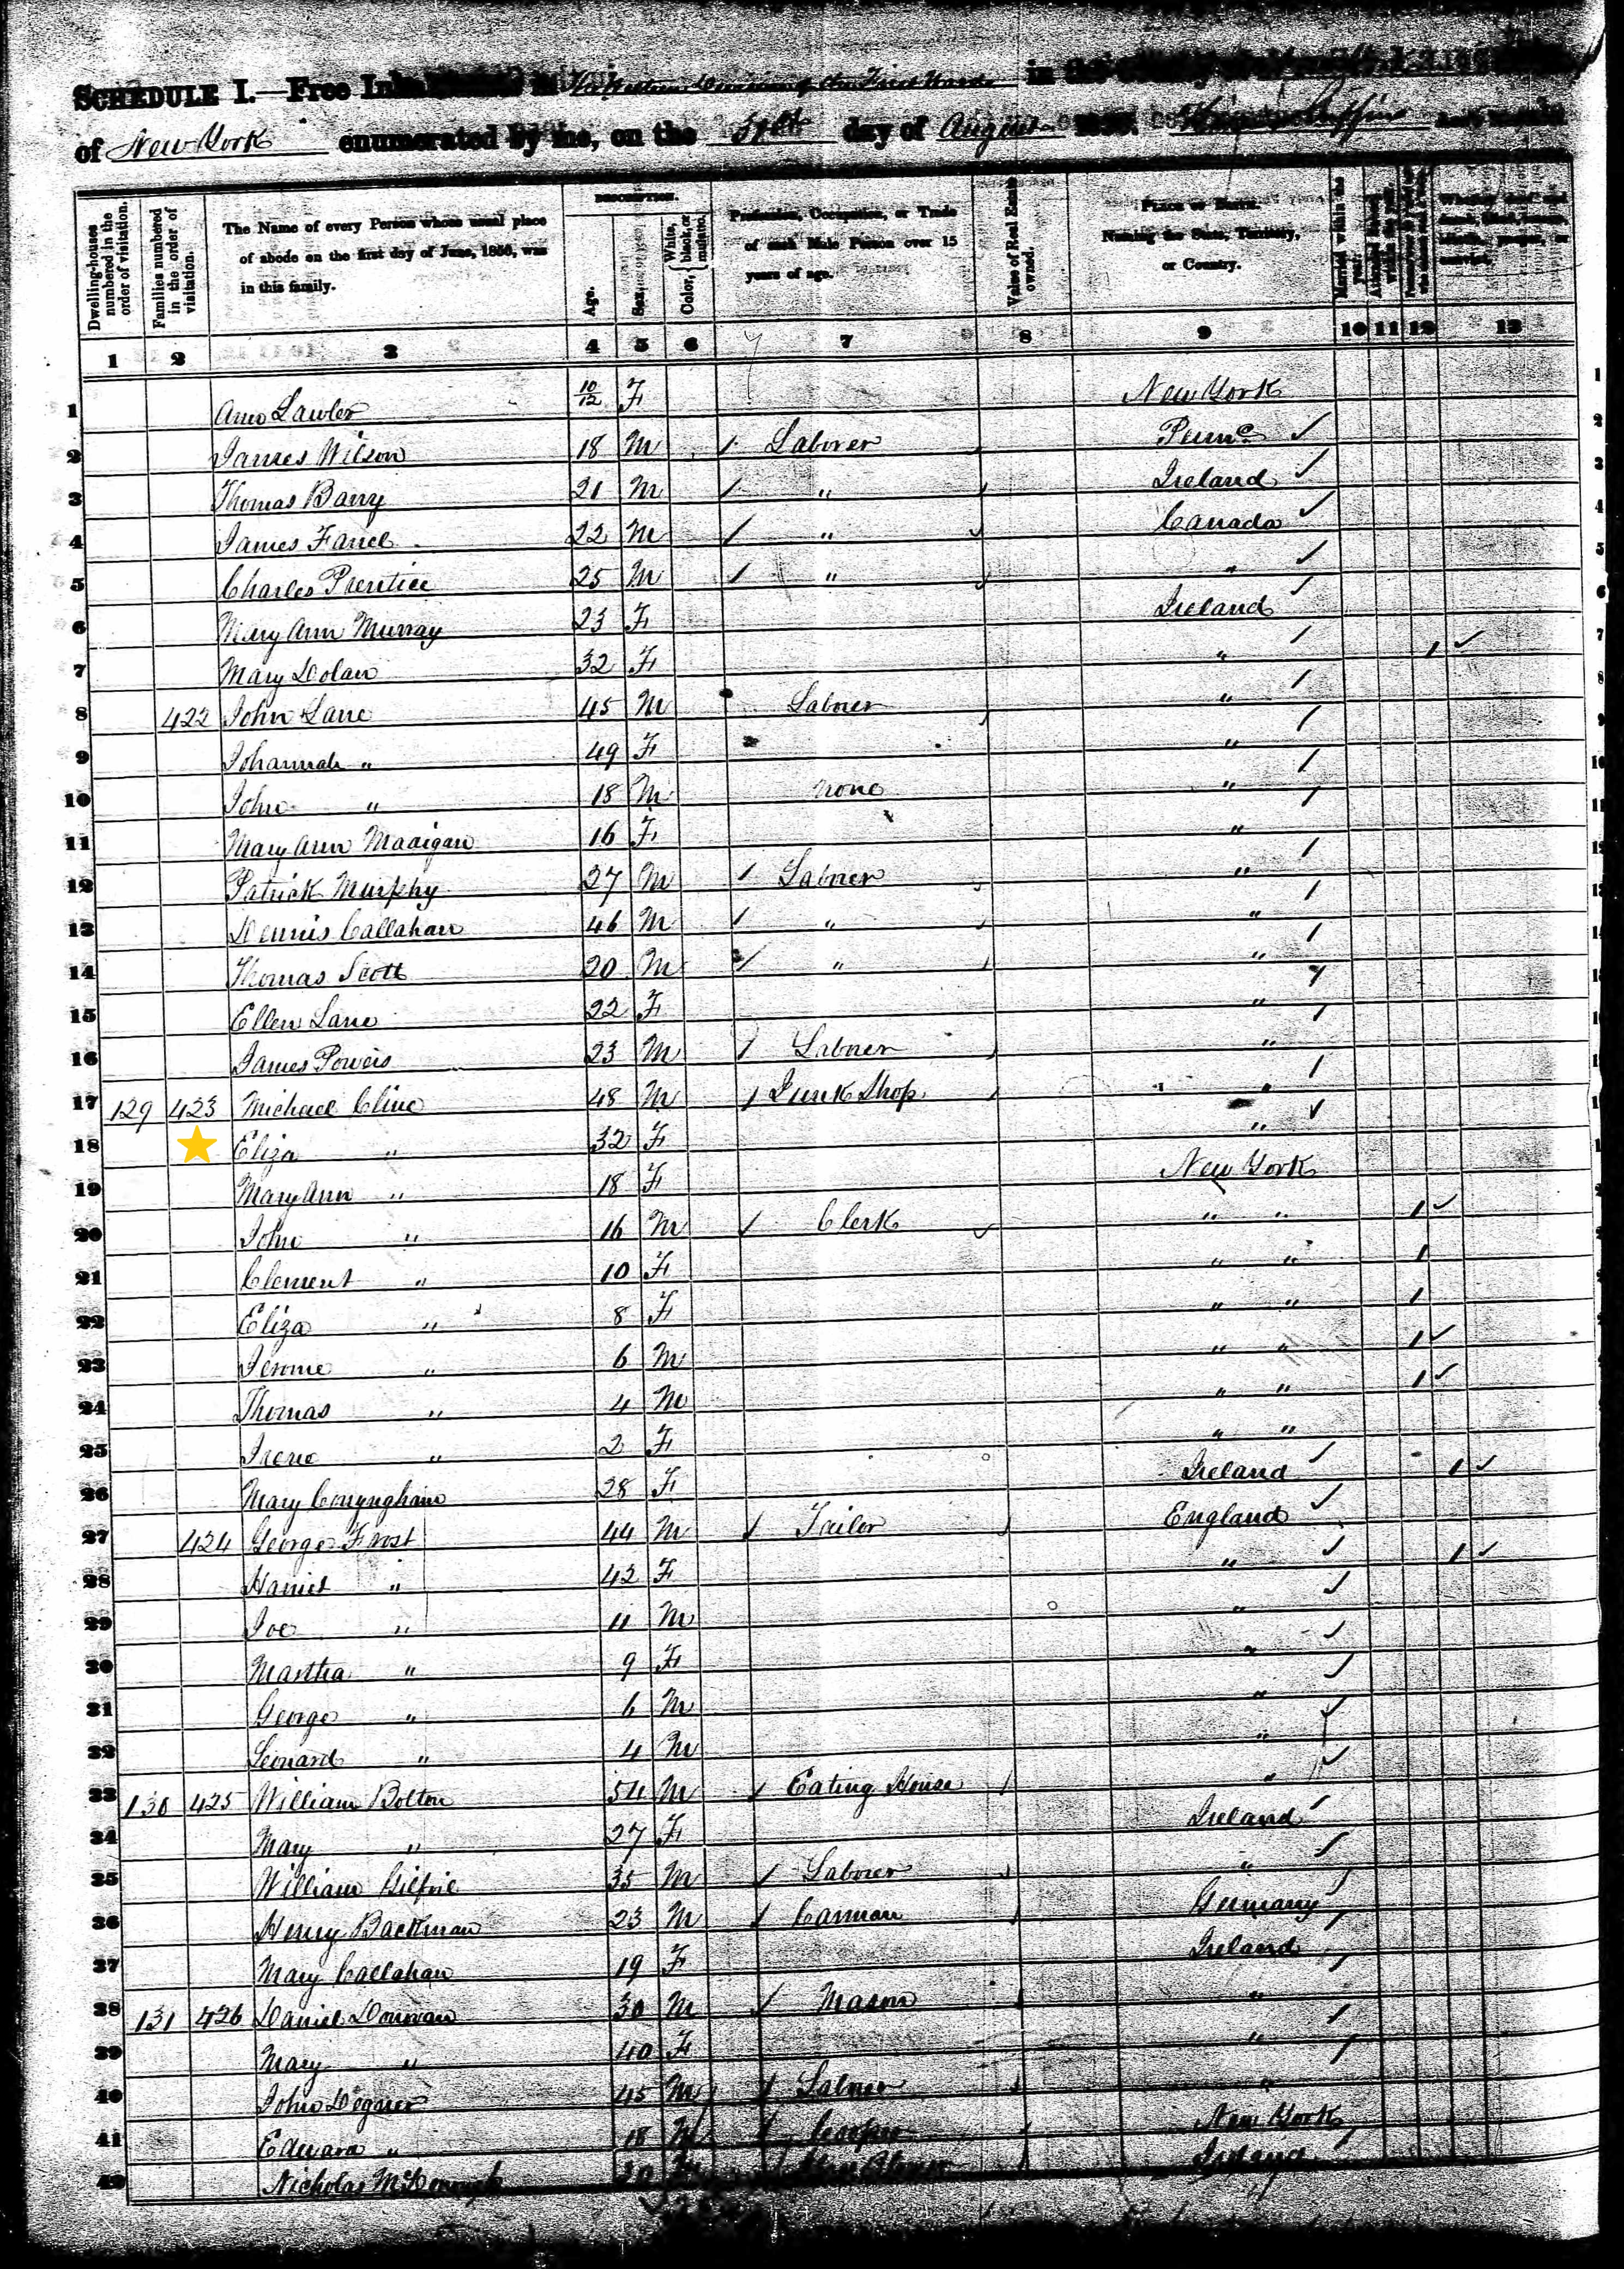 SCHEDULE I.—Free Inhabitants in the Western Division of the First Ward in the
of New York enumerated by me, on the 31st day of August 1850.
Dwelling-houses numbered in the order of visitation.
Families numbered in the order of visitation.
The Name of every Person whose usual place of abode on the first day of June, 1850, was in this family.
DESCRIPTION.
Age.
Sex.
Color, { White, black, or mulatto.
Profession, Occupation, or Trade of each Male Person over 15 years of age.
Value of Real Estate owned.
PLACE OF BIRTH. Naming the State, Territory, or Country.
Married within the year.
1 2 3 4 5 6 7 8 9 10 11 12 13
1 Ann Lawler 10/12 F New York 1
2 James Wilson 18 M Laborer Penna 2
3 Thomas Barry 21 M " Ireland 3
4 James Farrel 22 M " Canada 4
5 Charles Prentice 25 M " " 5
6 Mary Ann Murray 23 F Ireland 6
7 Mary Dolan 32 F " 1 7
8 422 John Lane 45 M Laborer " 8
9 Johannah " 49 F " 9
10 John " 18 M none " 10
11 Mary Ann Madigan 16 F " 11
12 Patrick Murphy 27 M Laborer "
13 Dennis Callahan 46 M " "
14 Thomas Scott 20 M " "
15 Ellen Lane 22 F "
16 James Powers 23 M Laborer "
17 129 423 Michael Cline 48 M Junk Shop "
18 Eliza " 32 F "
19 Mary Ann " 18 F New York
20 John " 16 M Clerk " " 1
21 Clement " 10 F " " 1
22 Eliza " 8 F " " 1
23 Jerome " 6 M " " 1
24 Thomas " 4 M " " 1
25 Irene " 2 F " "
26 Mary Conyngham 28 F Ireland 1
27 424 George Frost 44 M Tailor England
28 Harriet " 42 F " 1
29 Joe " 11 M "
30 Martha " 9 F "
31 George " 6 M "
32 Leonard " 4 M "
33 130 425 William Bolton 54 M Eating House "
34 Mary " 27 F Ireland
35 William 35 M Laborer "
36 Henry Backman 23 M Carman Germany
37 Mary Callahan 19 F Ireland
38 131 426 Daniel Donovan 30 M Mason "
39 Mary " 40 F "
40 John 45 M Laborer "
41 Edward " 18 M New York
42 Nicholas McDonough 20